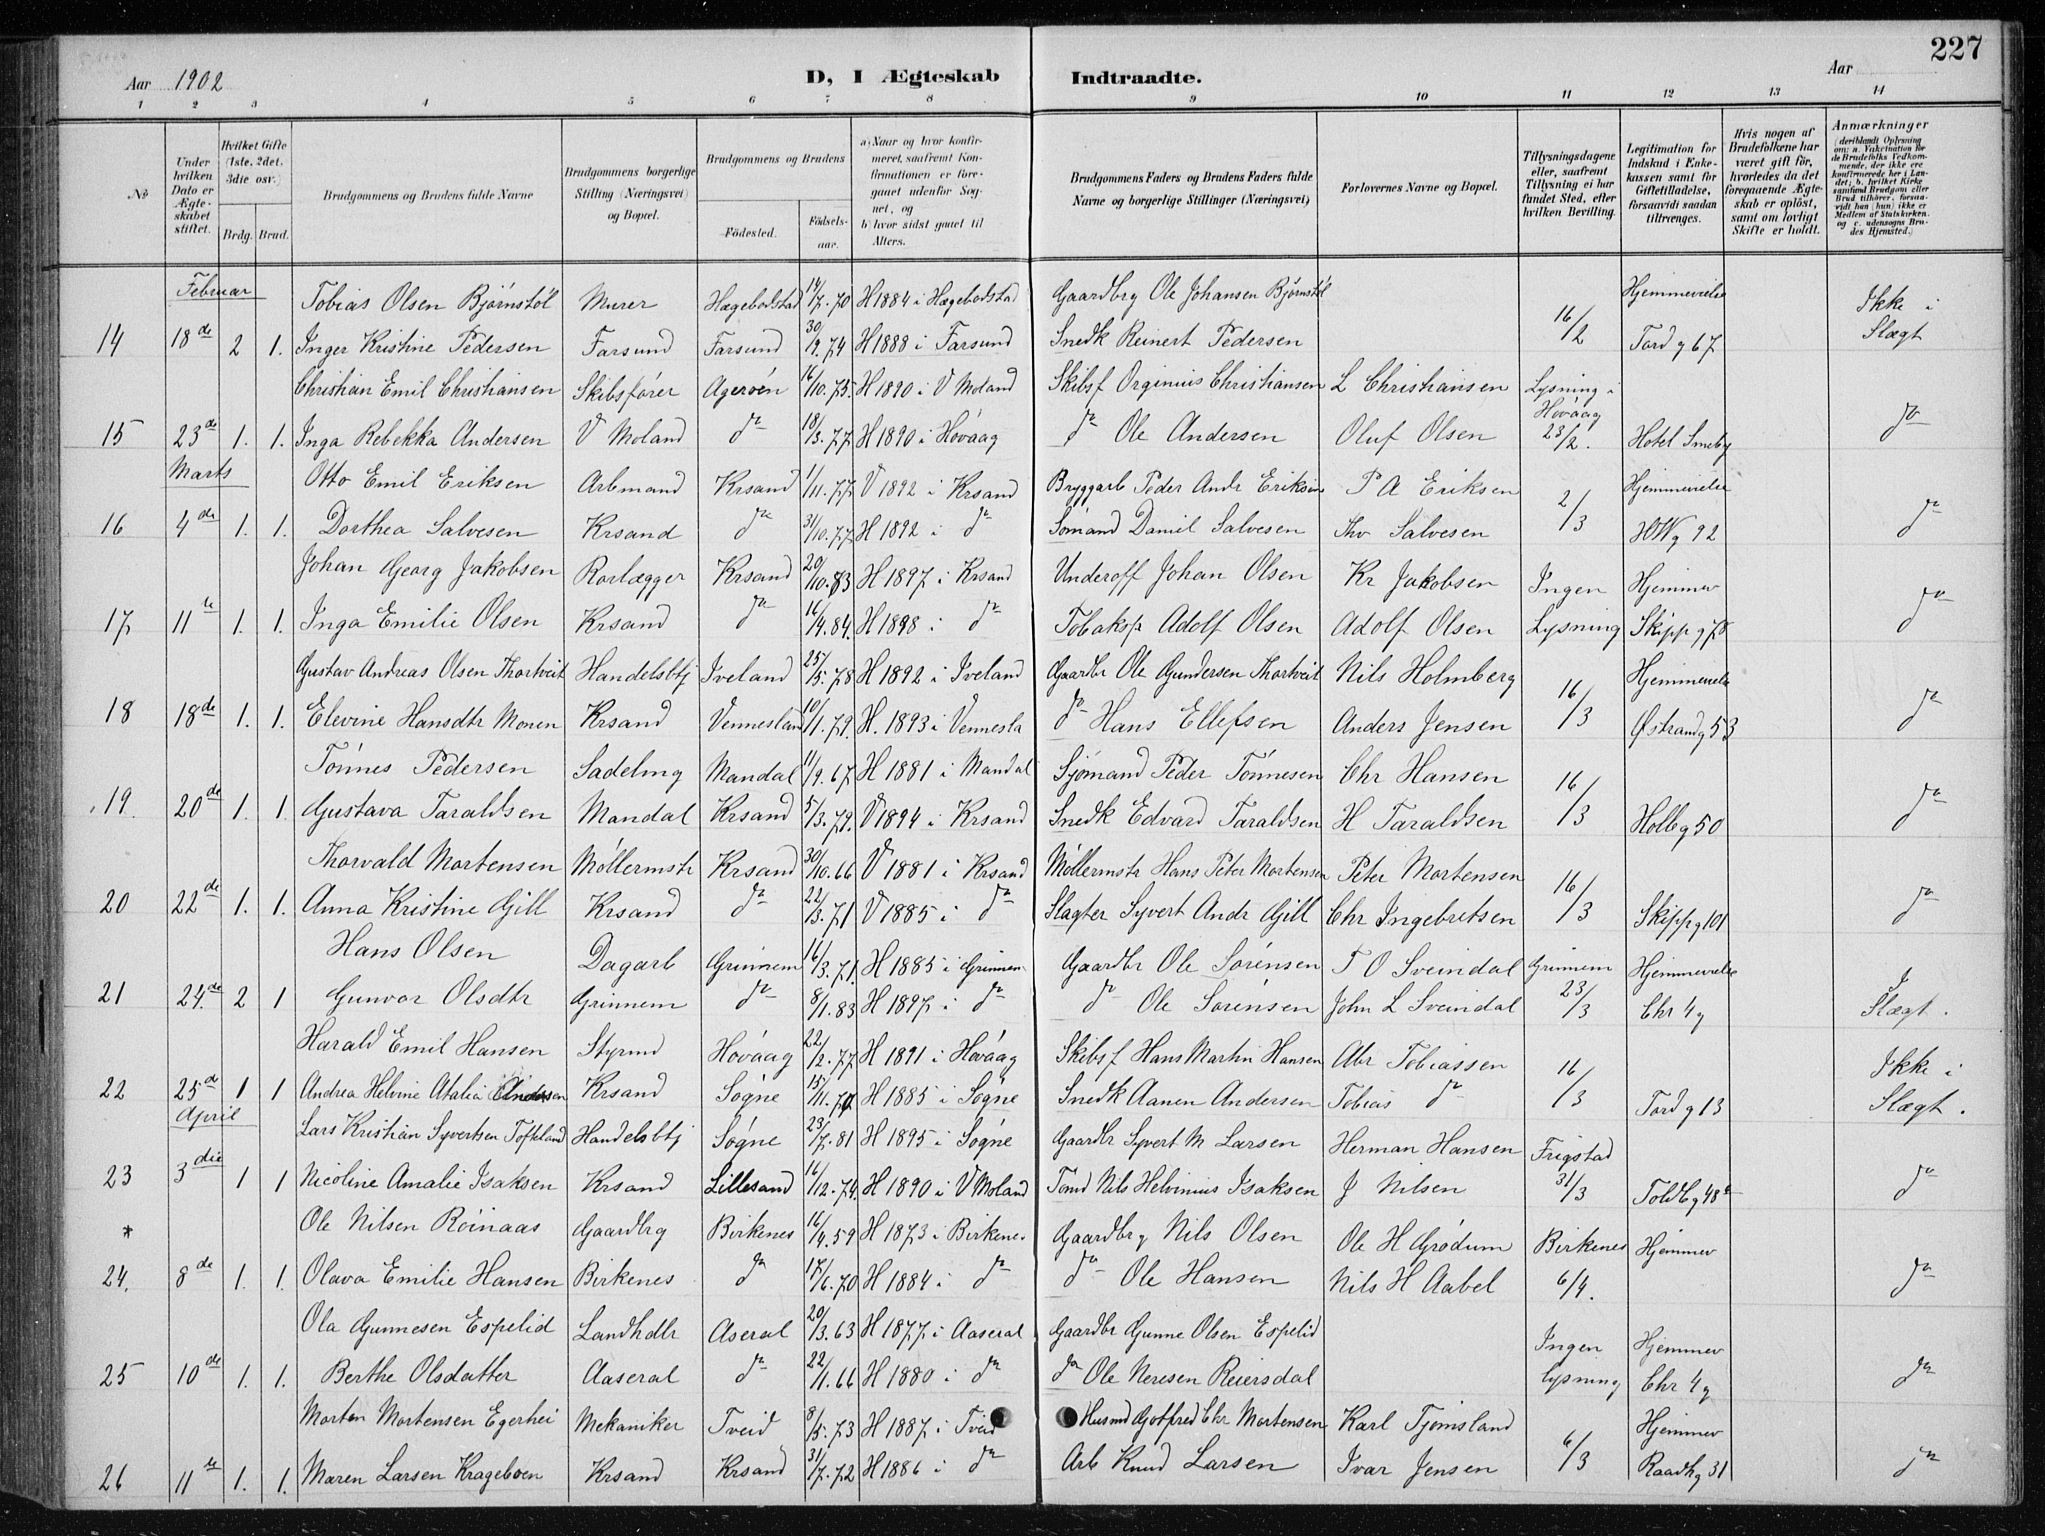 227
Aar 1902
D, I Ægteskab Indtraadte.
Aar
1 2 3 4 5 6 7 8 9 10 11 12 13 14
No
Under hvilken Dato er Ægteskabet stiftet.
Hvilket Gifte (1ste, 2det, 3die osv.)
Brdg. Brud.
Brudgommens og Brudens fulde Navne
Brudgommens borgerlige Stilling (Næringsvei) og Bopæl.
Brudgommens og Brudens
Födested. Födselsaar.
a) Naar og hvor konfirmeret, saafremt Konfirmationen er foregaaet udenfor Sognet, og
b) hvor sidst gaaet til Alters.
Brudgommens Faders og Brudens Faders fulde Navne og borgerlige Stillinger (Næringsvei)
Forlovernes Navne og Bopæl.
Tillysningsdagene eller, saafremt Tillysning ei har fundet Sted, efter hvilken Bevilling.
Legitimation for Indskud i Enkekassen samt for Giftetilladelse, forsaavidt saadan tiltrænges.
Hvis nogen af Brudefolkene har været gift för, hvorledes da det foregaaende Ægteskab er oplöst, samt om lovligt Skifte er holdt.
Anmærkninger (deriblandt Oplysning om: a. Vakcination for de Brudefolks Vedkommende, der ikke ere konfirmerede her i Landet; b. hvilket Kirkesamfund Brudgom eller Brud tilhörer, forsaavidt han (hun) ikke er Medlem af Statskirken, og c. udensogns Brudes Hjemsted.)
Februar Tobias Olsen Bjørnstøl Murer Hægebodstad 14/7.70 H 1884 i Hægebodstad Gaardbrg Ole Johansen Bjørnstøl Hjemmevielse Ikke i
14 18de 2 1. Inger Kristine Pedersen Farsund Farsund 30/9.74 H 1888 i Farsund Snedk Reinert Pedersen 16/2 Tordg 67 Slægt
Christian Emil Christiansen Skibsfører Agerøen 16/10.75. H 1890 i V Moland Skibsf Orginius Christiansen L Christiansen Lysning i Høvaag
15 23de 1. 1. Inga Rebekka Andersen V Moland do 18/3.77. H 1890 i Høvaag do Ole Andersen Oluf Olsen 23/2. Hotel Smeby do
Marts Otto Emil Eriksen Arbmand Krsand 1/11.77. V 1892 i Krsand Bryggarb Peder Andr Eriksen P A Eriksen Hjemmevielse
16 4de 1. 1. Dorthea Salvesen Krsand do 31/10.77. H 1892 i do Sømand Daniel Salvesen Thv Salvesen 2/3 HWg 92 do
Johan Georg Jakobsen Rørlægger Krsand 20/10.83 H 1897 i Krsand Underoff Johan Olsen Kr Jakobsen Ingen Hjemmev
17 11te 1. 1. Inga Emilie Olsen Krsand do 16/4.84. H 1898 i do Tobaksp Adolf Olsen Adolf Olsen Lysning Skippg 78 do
Gustav Andreas Olsen Thortveit Handelsbtj Iveland 25/5.78 H 1892 i Iveland Gaardbr Ole Gundersen Thortveit Nils Holmberg Hjemmevielse
18 18de 1. 1. Elevine Hansdtr Monen Krsand Vennesland 10/1.79. H. 1893 i Vennesla do Hans Ellefsen Anders Jensen 16/3 Østrandg 53 do
Tønnes Pedersen Sadelmg Mandal 11/9.67. H 1881 i Mandal Sjømand Peder Tønnesen Chr Hansen
19 20de 1. 1. Gustava Taraldsen Mandal Krsand 5/3.79. V 1894 i Krsand Snedk Edvard Taraldsen H Taraldsen 16/3 Holbg 50 do
Thorvald Mortensen Møllermstr Krsand 30/10.66 V 1881 i Krsand Møllermstr Hans Peter Mortensen Peter Mortensen
20 22de 1. 1. Anna Kristine Gill Krsand do 22/3.71 V 1885 i do Slagter Syvert Andr Gill Chr Ingebretsen 16/3 Skippg 101 do
Hans Olsen Dagarb Grinnem 16/3.71. H 1885 i Grinnem Gaardbr Ole Sørensen T O Sveindal Grinnem Hjemmevielse I
21 24de 2 1 Gunvor Olsdtr Grinnem do 8/1.83 H 1897 i do do Ole Sørensen John L Sveindal 23/3 Chr 4g Slægt.
Harald Emil Hansen Styrmd Høvaag 22/2.77. H 1891 i Høvaag Skibsf Hans Martin Hansen Abr Tobiassen Ikke i
22 25de 1 1 Andrea Helvine Atalia Andersen Krsand Søgne 15/11.70 H 1885 i Søgne Snedk Aanen Andersen Tobias do 16/3 Tordg 13 Slægt.
April Lars Kristian Syvertsen Tofteland Handelsbtj Søgne 23/7.81 H 1895 i Søgne Gaardbr Syvert M Larsen Herman Hansen Frigstad
23 3die 1 1 Nicoline Amalie Isaksen Krsand Lillesand 16/12.74. H 1890 i V Moland Tømd Nils Helvinius Isaksen J Nilsen 31/3 Toldbg 48 do
* Ole Nilsen Røinaas Gaardbrg Birkenes 16/4.59 H 1873 i Birkenes Gaardbrg Nils Olsen Ole H Grødum Birkenes Hjemmev
24. 8de 1. 1. Olava Emilie Hansen Birkenes do 17/6.70 H 1884 i do do Ole Hansen Nils H Aabel 6/4. do
Ola Gunnesen Espelid Landhdlr Aseral 20/3.63 H 1877 i Aaseral Gaardbr Gunne Olsen Espelid Ingen Hjemmev
25 10de 1. 1. Berthe Olsdatter Aaseral do 22/1.66 H 1880 i do do Ole Neresen Reiersdal Lysning Chr 4g do
Morten Mortensen Egerhei Mekaniker Tveid 8/5.73 H 1887 i Tveid Husmd Gotfred Chr Mortensen Karl Tjømsland Hjemmev
26 11te 1. 1. Maren Larsen Krageboen Krsand Krsand 31/7.72 H 1886 i do Arb Knud Larsen Ivar Jensen 6/3 Raadhg 31 do